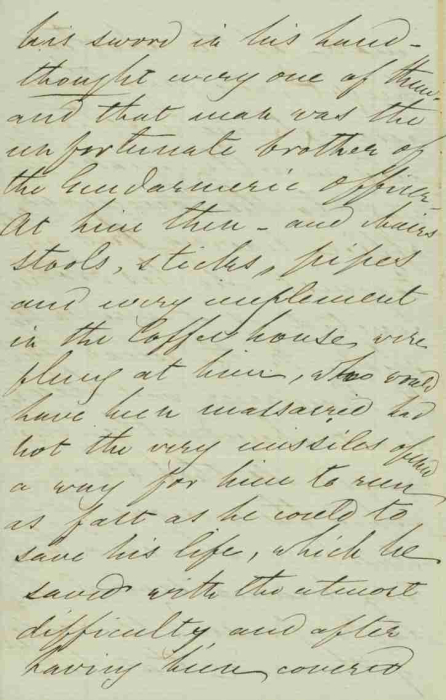 his sword in his hand -
thought every one of them,
and that man was the
unfortunate brother of
the Gendarmerie officer
At him then - and chairs
stools, sticks, pipes
and every implement
in the Coffee house, were
flung at him, who would
have been massacred had
not the very missiles opened
a way for him to run
as fast as he could to
save his life, which he
saved with the utmost
difficulty and after
having been covered